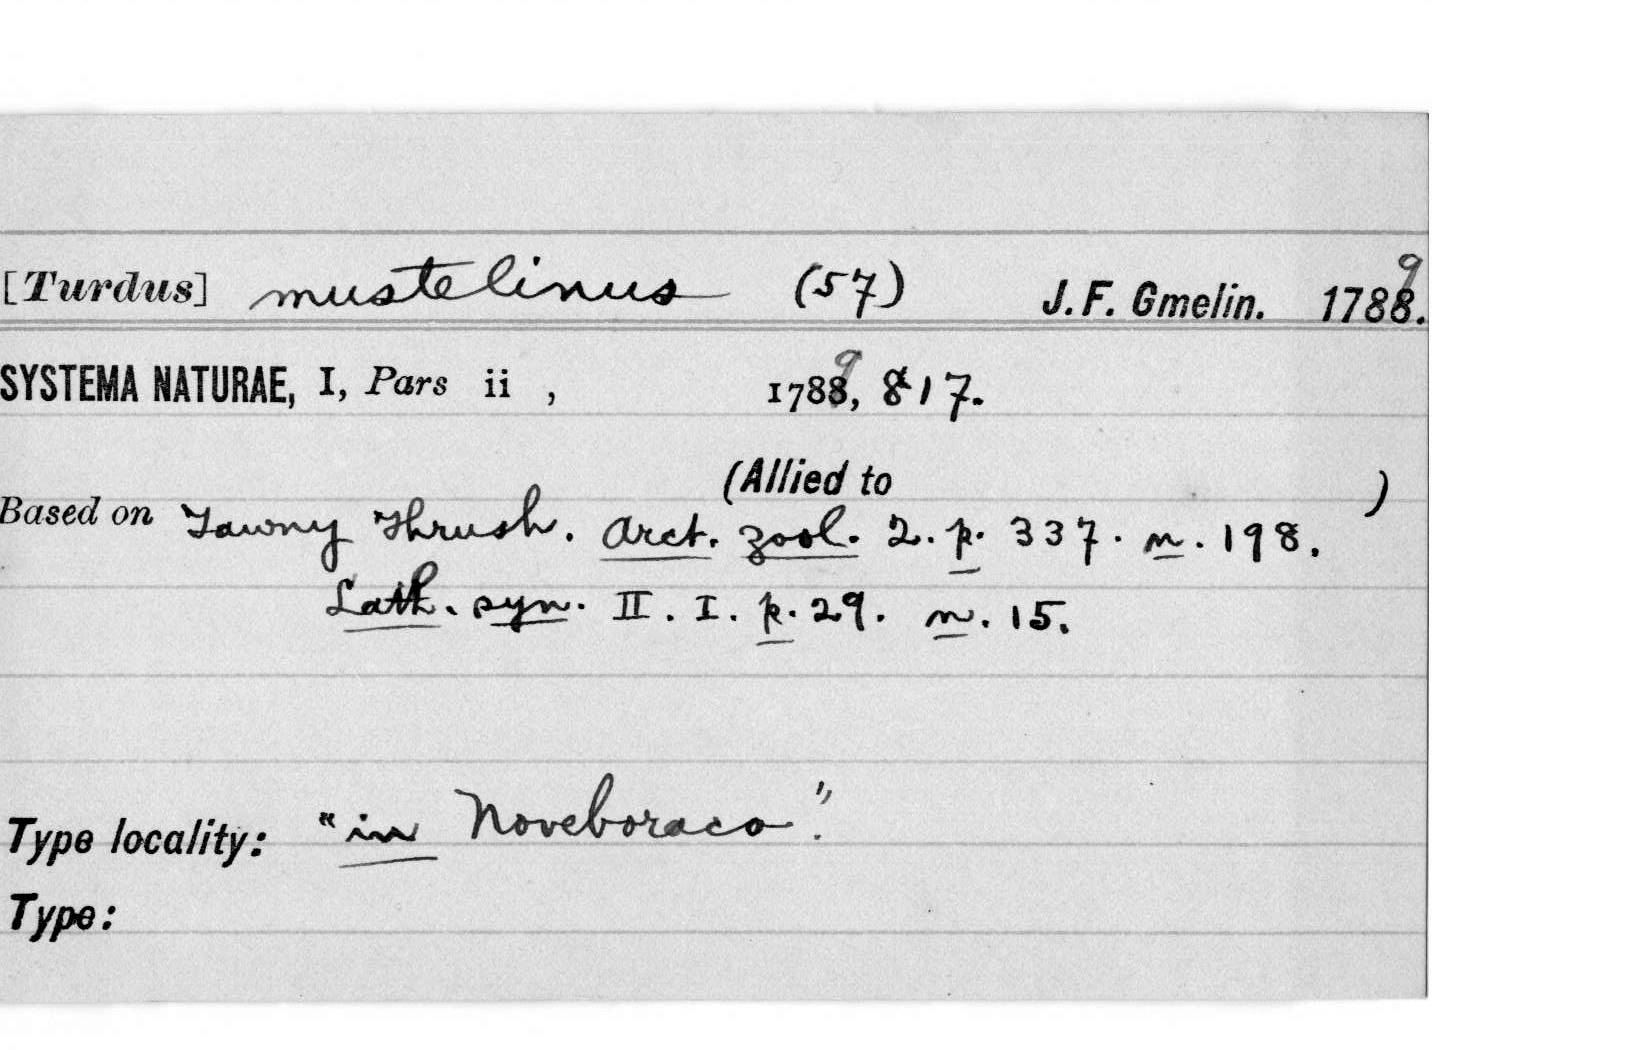 [Turdus] mustelinus (57) J. F. Gmelin. 1788. 9
SYSTEMA NATURAE, I, Pars ii , 1788, 9 817.
(Allied to )
Based on Tawny Thrush. Arct. zool. 2. p. 337. n. 198.
Lath. syn. II. I. p. 29. n. 15.
Type locality: "in Noveboraco".
Type: